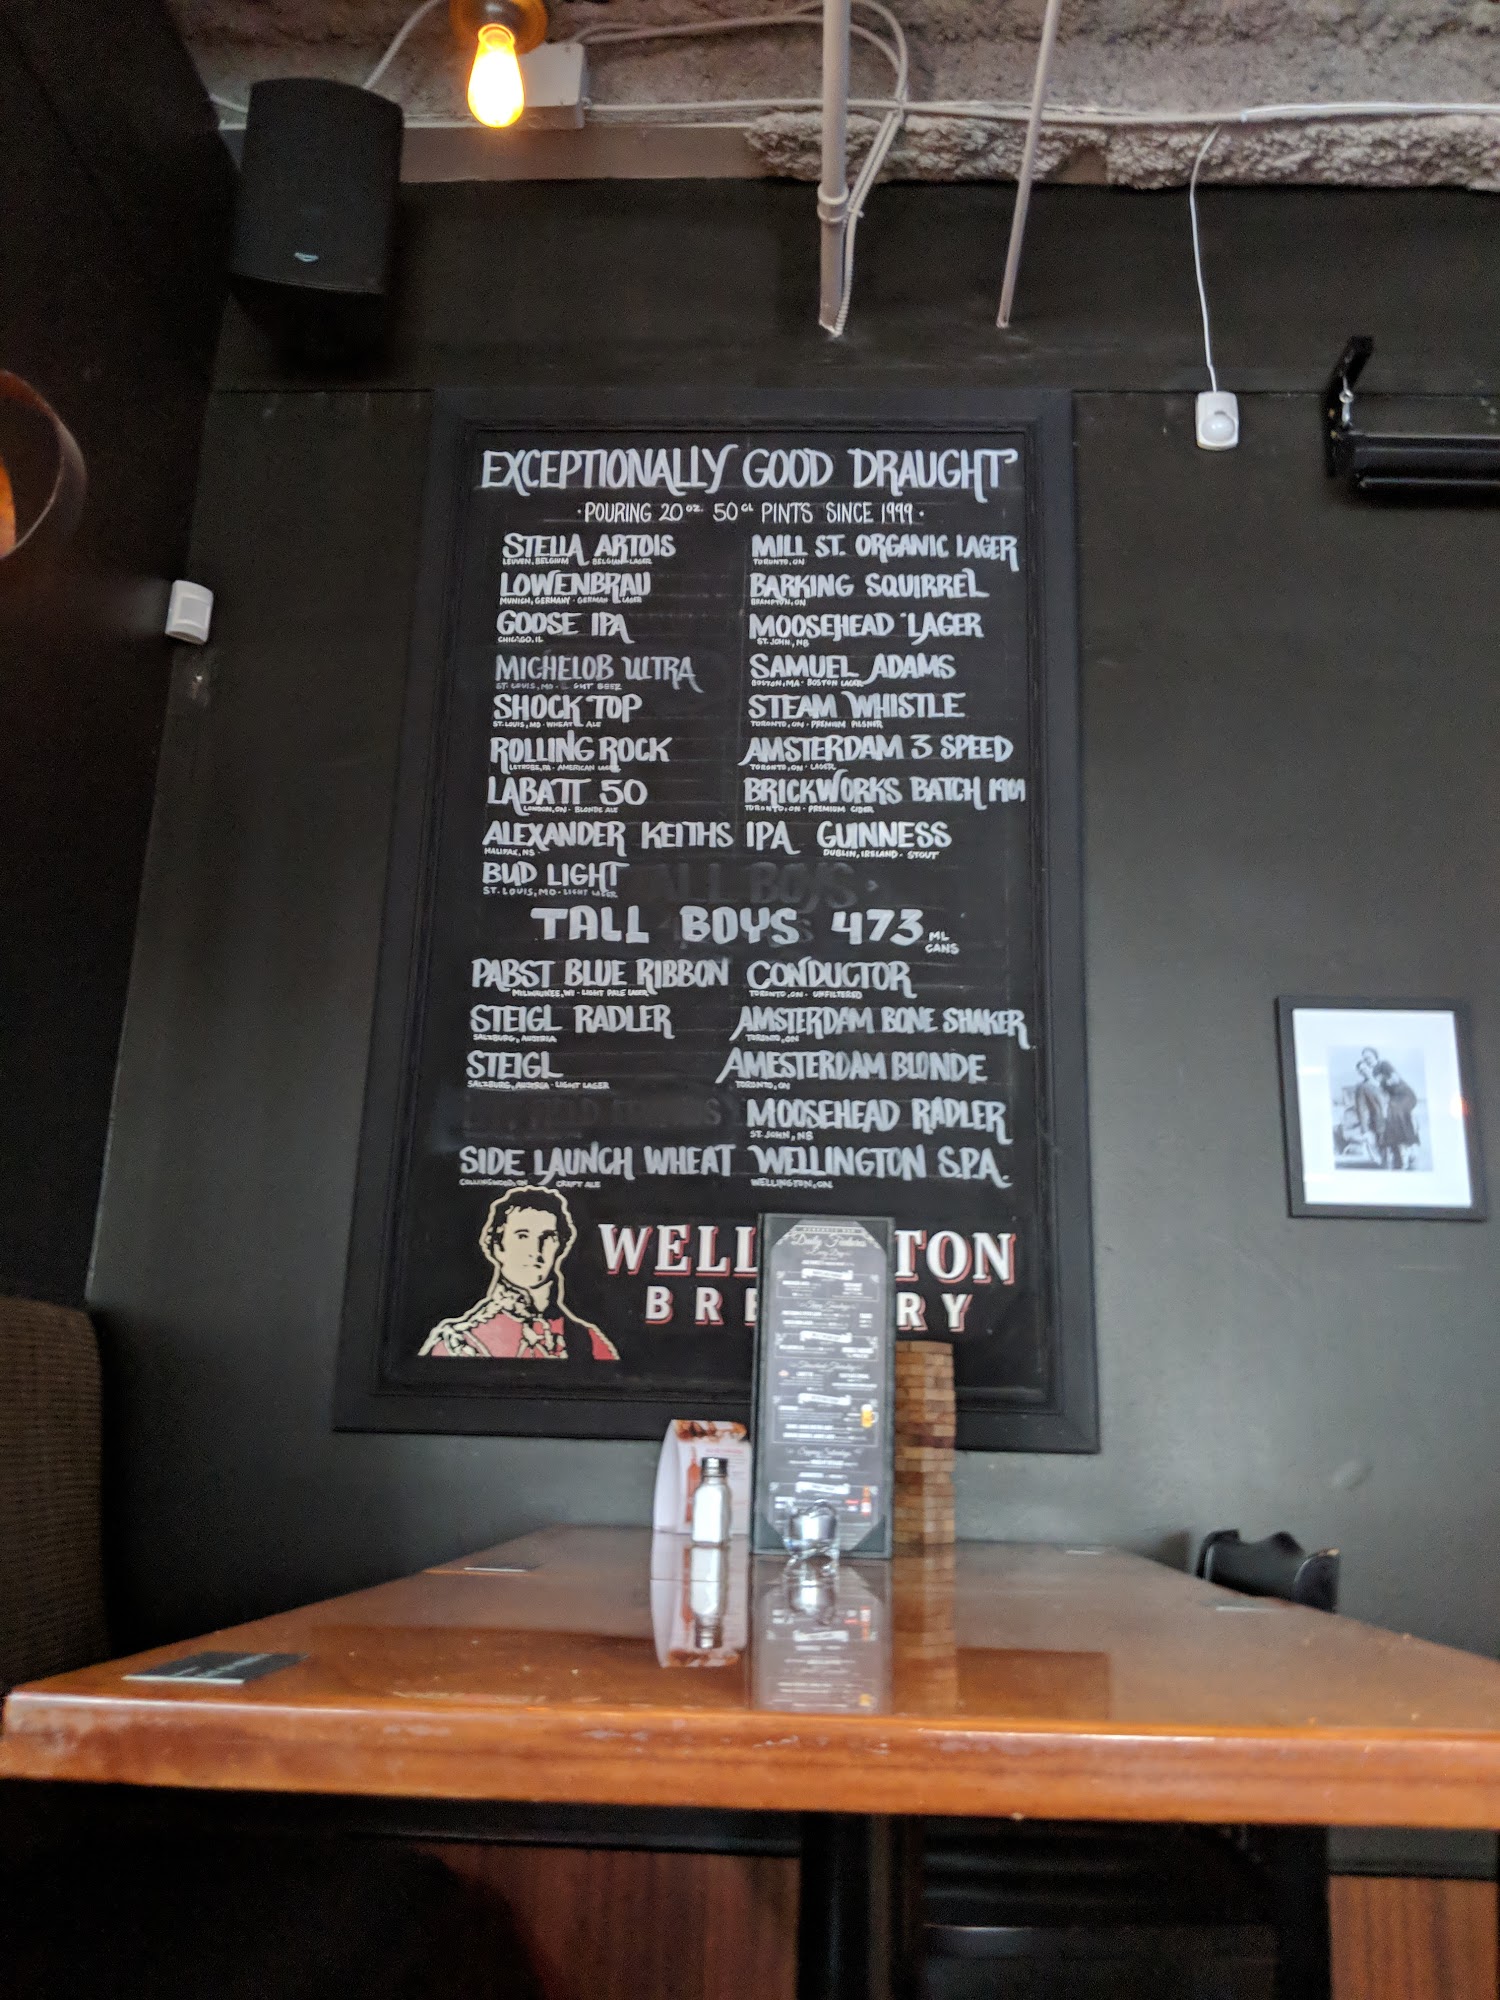 EXCEPTIONALLY GOOD DRAUGHT
· POURING 20 oz. 50 cl PINTS SINCE 1999 ·
STELLA ARTOIS
LEUVEN, BELGIUM BELGIAN LAGER
MILL ST. ORGANIC LAGER
TORONTO, ON
LOWENBRAU
MUNICH, GERMANY · GERMAN LAGER
BARKING SQUIRREL
BRAMPTON, ON
GOOSE IPA
CHICAGO, IL
MOOSEHEAD LAGER
ST. JOHN, NB
MICHELOB ULTRA
ST. LOUIS, MO · LIGHT BEER
SAMUEL ADAMS
BOSTON, MA · BOSTON LAGER
SHOCK TOP
ST. LOUIS, MO · WHEAT ALE
STEAM WHISTLE
TORONTO, ON · PREMIUM PILSNER
ROLLING ROCK
LATROBE, PA · AMERICAN LAGER
AMSTERDAM 3 SPEED
TORONTO, ON · LAGER
LABATT 50
LONDON, ON · BLONDE ALE
BRICKWORKS BATCH 1904
TORONTO, ON · PREMIUM CIDER
ALEXANDER KEITHS IPA
HALIFAX, NS
GUINNESS
DUBLIN, IRELAND · STOUT
BUD LIGHT
ST. LOUIS, MO · LIGHT LAGER
TALL BOYS
TALL BOYS 473 ML CANS
PABST BLUE RIBBON
MILWAUKEE, WI · LIGHT PALE LAGER
CONDUCTOR
TORONTO, ON · UNFILTERED
STEIGL RADLER
SALZBURG, AUSTRIA
AMSTERDAM BONE SHAKER
TORONTO, ON
STEIGL
SALZBURG, AUSTRIA · LIGHT LAGER
AMESTERDAM BLONDE
TORONTO, ON
MOOSEHEAD RADLER
ST. JOHN, NB
SIDE LAUNCH WHEAT
COLLINGWOOD, ON CRAFT ALE
WELLINGTON S.P.A.
WELLINGTON, ON
WELL TON
BRE RY
Daily Features